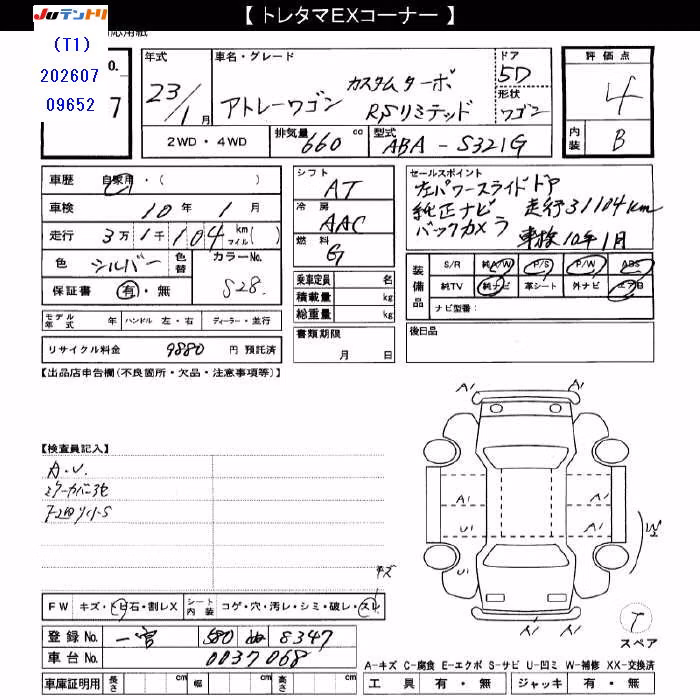 【 トレタマEXコーナー 】
JUテントリ
(T1)
202607
09652
対応用紙
o.
7
年式
23/1月
車名・グレード
アトレーワゴン カスタムターボ RSリミテッド
ドア
5D
形状
ワゴン
評価点
4
内装
B
2WD・4WD
排気量 660 cc
型式 ABA - S321G
車歴 自家用・( )
車検 10年 1月
走行 3万1千104 km マイル( )
色 シルバー
色替
カラーNo.
S28
保証書 有・無
シフト
AT
冷房
AAC
燃料
G
乗車定員 名
積載量 kg
総重量 kg
書類期限
月 日
セールスポイント
左パワースライドドア
純正ナビ 走行31104km
バックカメラ 車検10年1月
装備品
S/R 純A/W P/S P/W ABS
純TV 純ナビ 革シート 外ナビ エアB
ナビ型番:
後日品
モデル年式 年 ハンドル 左・右 ディーラー・並行
リサイクル料金 9880 円 預託済
【出品店申告欄(不良箇所・欠品・注意事項等)】
【検査員記入】
A.U.
キズ
FW キズ・トビ石・割レX
シート内装 コゲ・穴・汚レ・シミ・破レ・スレ
登録No. 一宮 580 ぬ 8347
車台No. 0037068
車庫証明用 長さ cm 幅 cm 高さ cm
A1
A1
A1
A1
U1
A1
U1
A1
W
T
スペア
A-キズ C-腐食 E-エクボ S-サビ U-凹ミ W-補修 XX-交換済
工具 有・無 ジャッキ 有・無